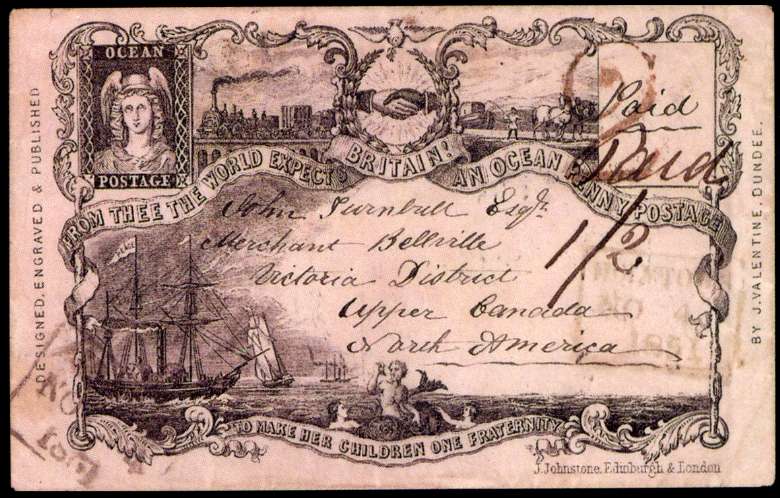 DESIGNED, ENGRAVED & PUBLISHED
OCEAN
POSTAGE
Paid
Paid
1/2
FROM THEE THE WORLD EXPECTS BRITAIN! AN OCEAN PENNY POSTAGE
John Turnbull Esqr.
Merchant Bellville
Victoria District
Upper Canada
North America
TO MAKE HER CHILDREN ONE FRATERNITY
J. Johnstone, Edinburgh & London
BY J. VALENTINE, DUNDEE.